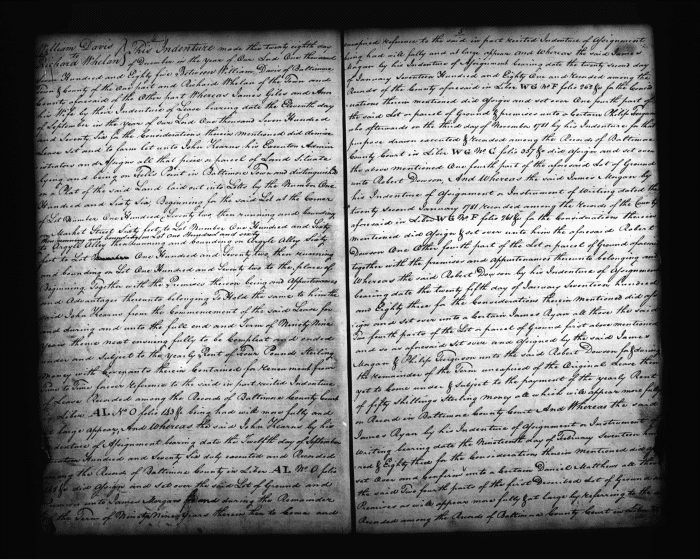 William Davis } This Indenture made this twenty eighth day
Richard Whelan } of December in the year of Our Lord One thousand
Hundred and Eighty five Between William Davis of Baltimore
Town & County of the One part and Richard Whelan of the Town and
County aforesaid of the Other part Whereas James Giles and Ann
his Wife by their Indenture of Lease bearing date the Eleventh day
of September in the Year of our Lord One thousand Seven Hundred
and Seventy Six for the Considerations therein Mentioned did demise
set and to farm let unto John Hearns his Executors Admin
istrators and Assigns all that piece or parcel of Land Situate
lying and being on Fells Point in Baltimore Town and distinguished
Plot of the said Land laid out into Lotts by the Number One
Hundred and Sixty Six, Beginning for the said Lot at the Corner
of Lot Number One Hundred Seventy two then running and bounding
on Market Street Sixty feet to Lot Number One Hundred and Sixty
then running and bounding on Argyle Alley Sixty
feet to Lot Number One Hundred and Seventy Two then running
and bounding on Lot One Hundred and Seventy two to the place of
Beginning Together with the Premises thereon being and Appurtenances
and Advantages thereunto belonging To Hold the same to him the
said John Hearns from the Commencement of the said Lease for
and during and unto the full end and Term of Ninety Nine
Years thence next ensuing fully to be Compleat and ended
under and Subject to the yearly Rent of Four Pounds Sterling
Money with Covenants therein Contained for Renewment from
Time to Time forever Reference to the said in part recited Indenture
of Lease Recorded among the Records of Baltimore County Court
in Liber AL No O folio 453 & being had will more fully and
at large appear, And Whereas the said John Hearns by his
Indenture of Assignment bearing date the Twelfth day of September
Seventeen Hundred and Seventy Six duly executed and Recorded
among the Records of Baltimore County in Liber AL No O folio
& did Assign and set over the said Lot of Ground and
Premises unto James Morgan for and during the Remainder
the Term of Ninety Nine Years therein then to come and
unexpired reference to the said in part recited Indenture of Assignment
being had will fully and at large appear And Whereas the said James
Morgan by his Indenture of Assignment bearing date the twenty second day
of January Seventeen Hundred and Eighty One and recorded among the
Records of the County aforesaid in Liber WG No F folio 263 & for the Consid
erations therein mentioned did Assign and set over One fourth part of
the said Lot or parcel of Ground & premises unto a Certain Philip Ferguson
who afterwards on the third day of November 1781 by his Indenture for that
purpose drawn executed & recorded among the Records of Baltimore
County Court in Liber WG No G folio 357 & did Assign and set over
the above Mentioned One fourth part of the aforesaid Lot of Ground
unto Robert Dawson And Whereas the said James Morgan by
his Indenture of Assignment or Instrument of Writing dated the
twenty Second January 1781 recorded among the Records of the County
aforesaid in Liber WG No F folio 261 & for the Consideration therein
Mentioned did Assign & set over unto him the aforesaid Robert
Dawson One Other fourth part of the Lot or parcel of Ground aforesaid
together with the premises and appurtenances thereunto belonging and
Whereas the said Robert Dawson by his Indenture of Assignment
bearing date the twenty fifth day of January Seventeen Hundred
and Eighty three for the Considerations therein Mentioned did as
sign and set over unto a Certain James Ryan all those the said
Two fourth parts of the Lot or parcel of Ground first above mentioned
and as is aforesaid set over and Assigned by the said James
Morgan & Philip Ferguson unto the said Robert Dawson for & during
the remainder of the Term unexpired of the Original Lease then
yet to come under & subject to the payment of the yearly Rent
of fifty shillings Sterling money all which will appear more fully
on Record in Baltimore County Court And Whereas the said
James Ryan by his Indenture of Assignment or Instrument of
Writing bearing date the Nineteenth day of February Seventeen Hundred
and Eighty three for the Considerations therein Mentioned did
set over and Confirm unto a Certain Daniel Matthew all those
the said Two fourth parts of the first Described Lot of Ground and
Premises as will appear more fully & at large by referring to the
Recorded among the Records of Baltimore County Court in Liber